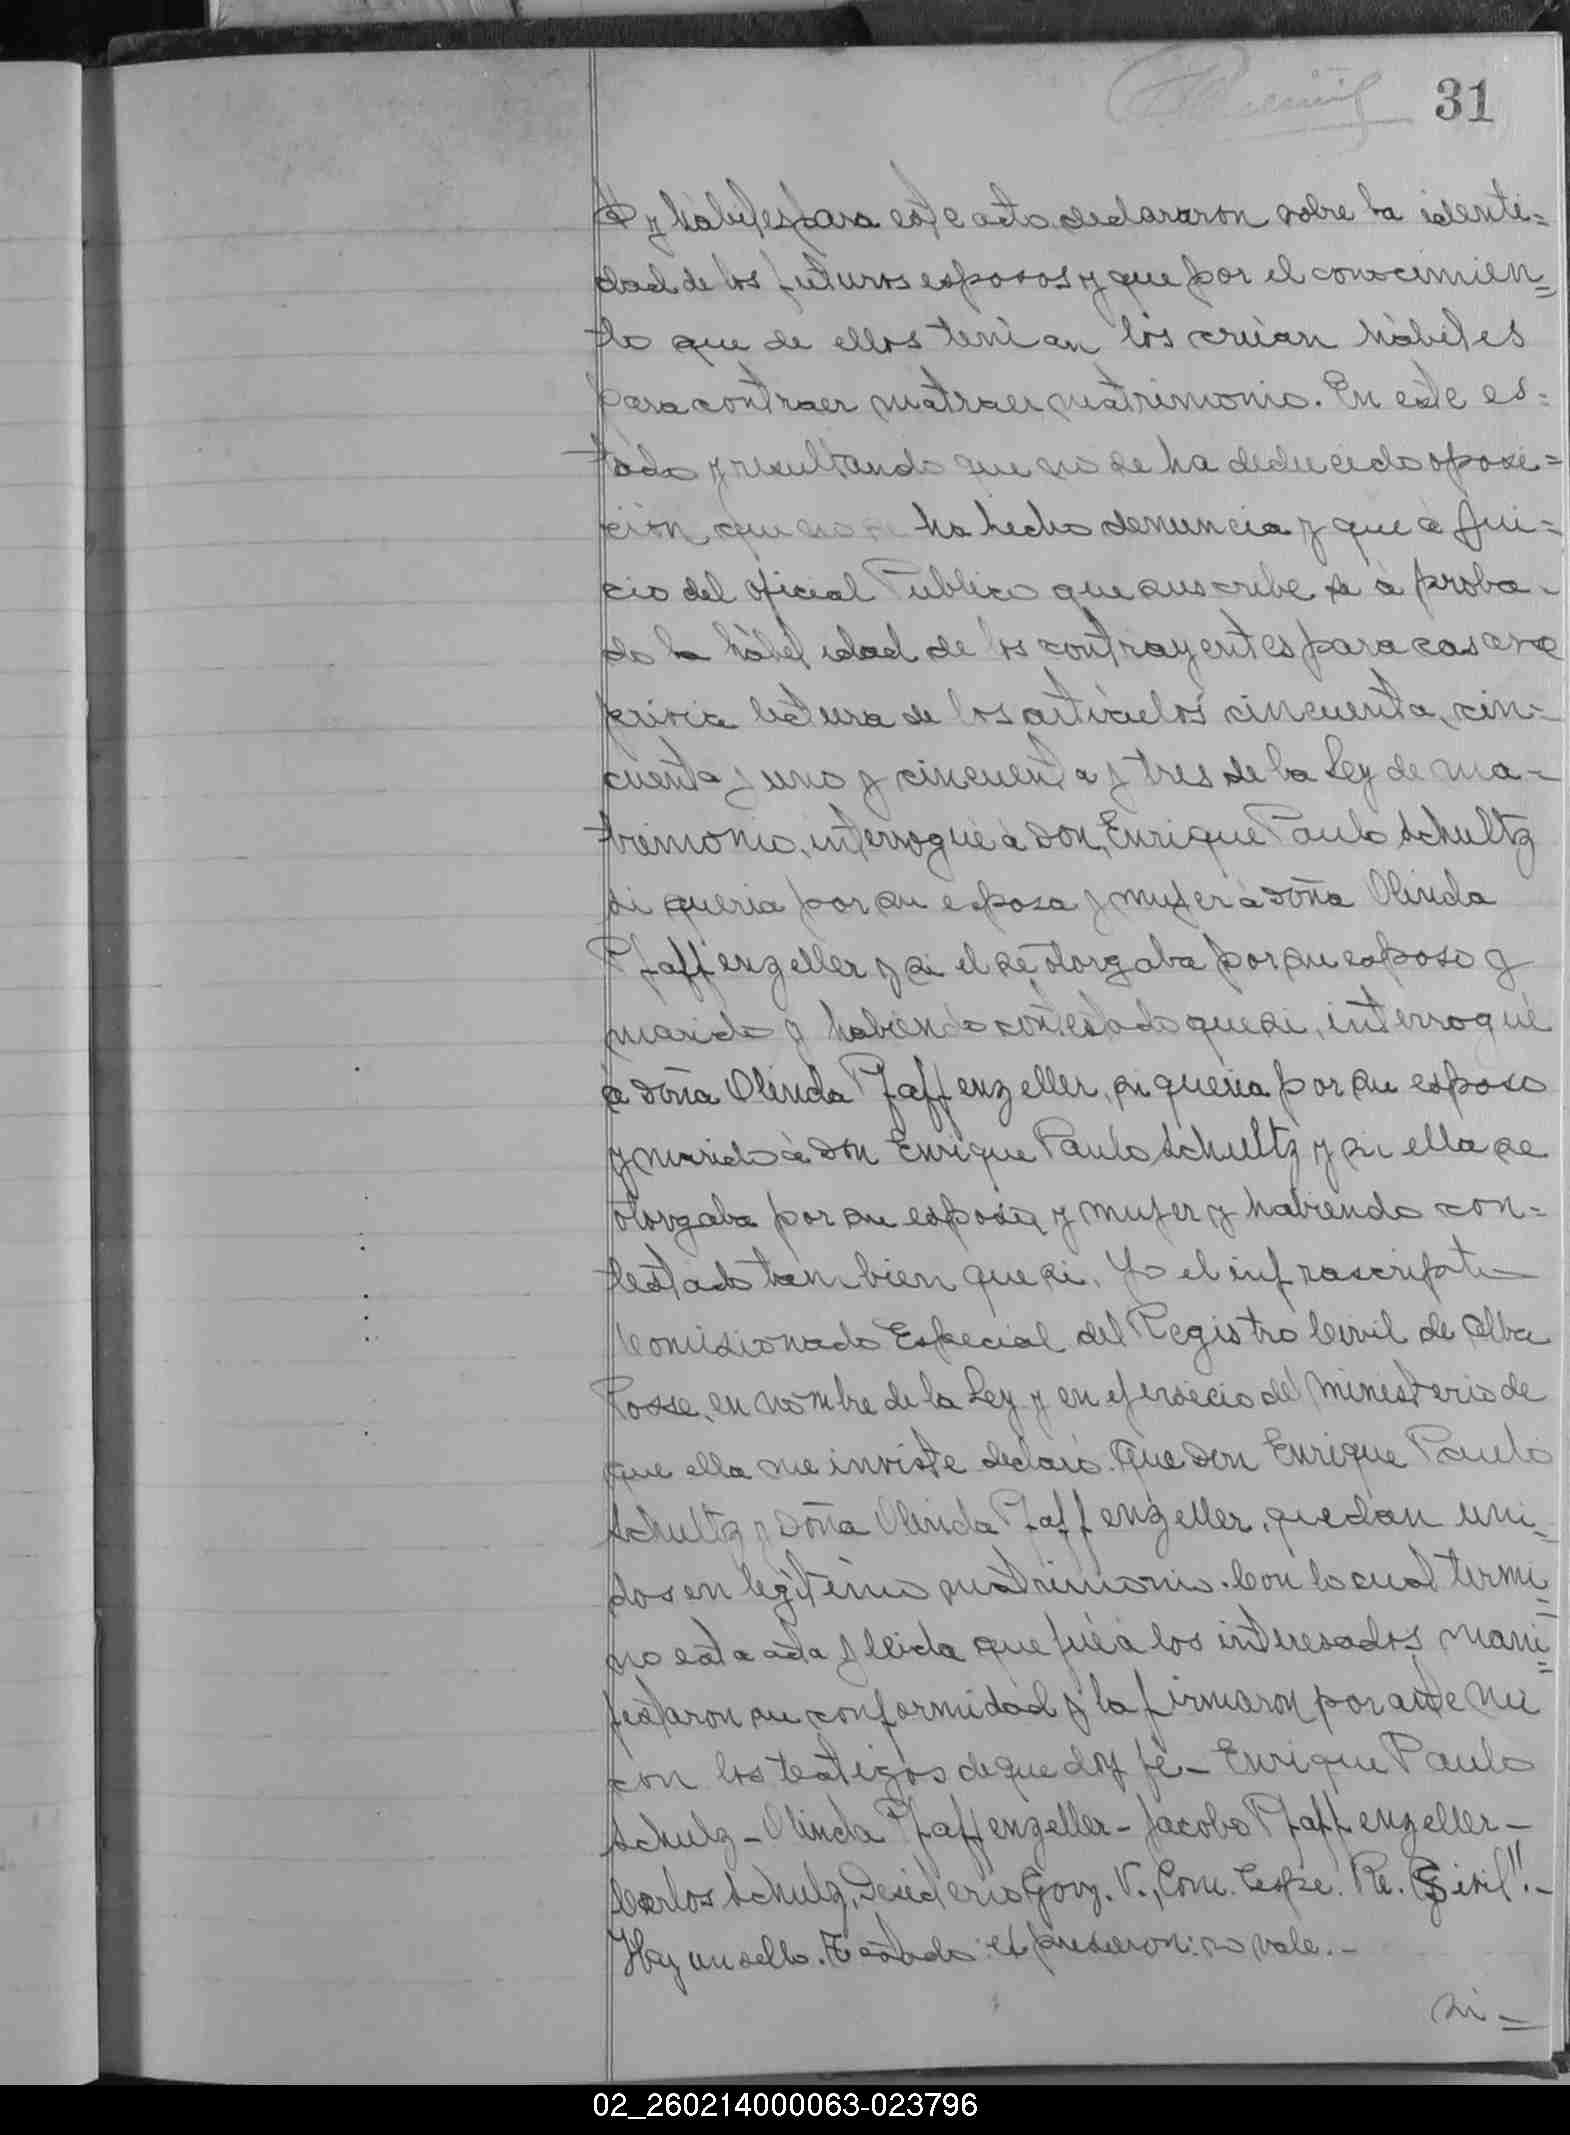 31
y hábiles para este acto declararon sobre la identi=
dad de los futuros esposos y que por el conocimien=
to que de ellos tenian los crúan hábiles
para contraer matraer matrimonio. En este es=
tado y resultando que no se ha deducido oposi=
ción, que no se ha hecho denuncia y que á jui=
cio del oficial Publico que suscribe se á proba-
do la hábil idad de los contrayentes para casarse
privia lectura de los artículos cincuenta, cin=
cuenta y uno y cincuenta y tres de la Ley de ma-
trimonio, interrogué á Don, Enrique Paulo Schultz
si queria por su esposa y mujer á Doña Olinda
Pfaffenzeller y si el se otorgaba por su esposo y
marido y habiendo contestado que si, interrogué
á Doña Olinda Pfaffenzeller, si queria por su esposo
y marido á Don Enrique Paulo Schultz y si ella se
otorgaba por su esposa y mujer y habiendo con=
testado tan bien que si. Yo el infrascripto
Comisionado Especial del Registro Civil de Alba
Posse, en nombre de la Ley y en ejersicio del ministerio de
que ella me inviste declaro. Que Don Enrique Paulo
Schultz y Doña Olinda Pfaffenzeller, quedan uni=
dos en legítimo matrimonio. Con lo cual termi=
no esta acta y leida que fué á los interesados, mani=
festaron su conformidad y la firmaron por ante mi
con los testigos de que doy fé- Enrique Paulo
Schulz - Olinda Pfaffenzeller - Jacobo Pfaffenzeller -
Carlos Schulz, Desiderio Gonz. V., Com. Espe. Re. Civil".-
Hay un sello. Testado: espresaron: no vale.-
si=
02_260214000063-023796